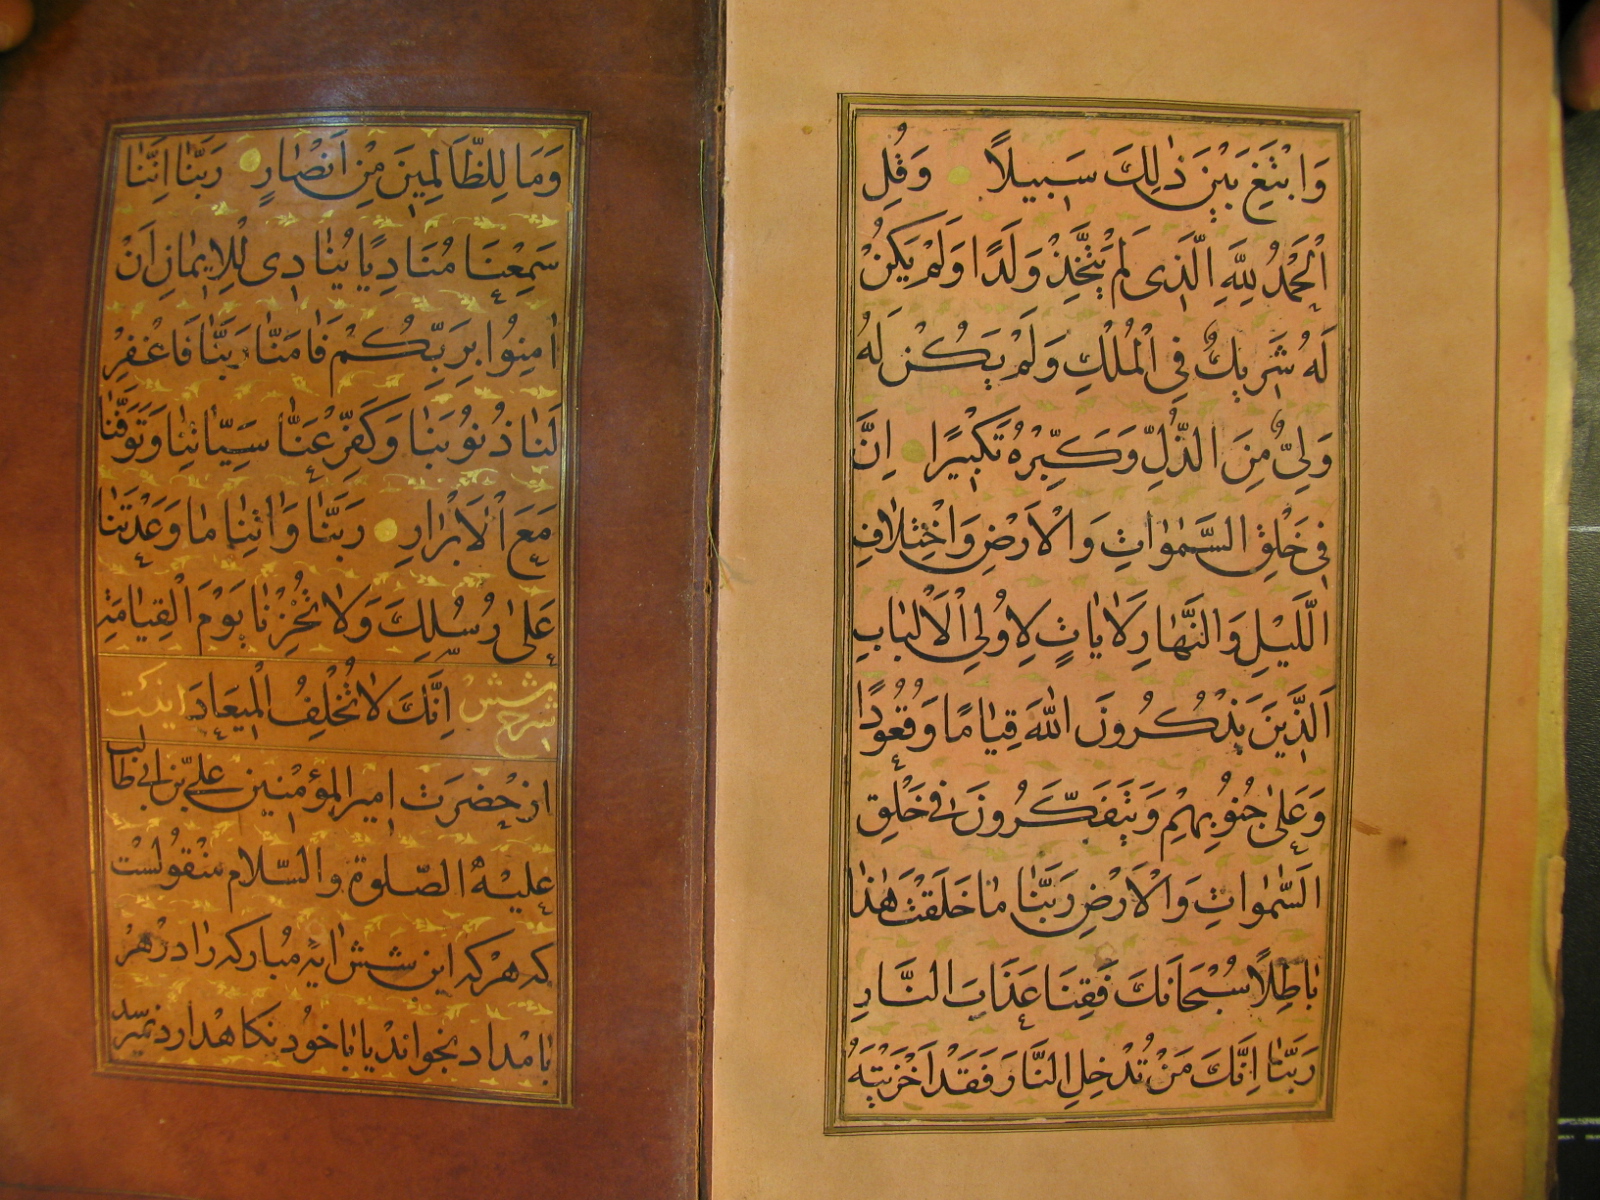 وَابْتَغِ بَيْنَ ذٰلِكَ سَبِيلًا وَقُلِ
الْحَمْدُ لِلّٰهِ الَّذِى لَمْ يَتَّخِذْ وَلَدًا وَلَمْ يَكُنْ
لَهُ شَرِيكٌ فِى الْمُلْكِ وَلَمْ يَكُنْ لَهُ
وَلِىٌّ مِنَ الذُّلِّ وَكَبِّرْهُ تَكْبِيرًا اِنَّ
فِى خَلْقِ السَّمٰوَاتِ وَالْاَرْضِ وَاخْتِلَافِ
اللَّيْلِ وَالنَّهَارِ لَاٰيَاتٍ لِاُولِى الْاَلْبَابِ
اَلَّذِينَ يَذْكُرُونَ اللّٰهَ قِيَامًا وَقُعُودًا
وَعَلٰى جُنُوبِهِمْ وَيَتَفَكَّرُونَ فِى خَلْقِ
السَّمٰوَاتِ وَالْاَرْضِ رَبَّنَا مَا خَلَقْتَ هٰذَا
بَاطِلًا سُبْحَانَكَ فَقِنَا عَذَابَ النَّارِ
رَبَّنَا اِنَّكَ مَنْ تُدْخِلِ النَّارَ فَقَدْ اَخْزَيْتَهُ
وَمَا لِلظَّالِمِينَ مِنْ اَنْصَارٍ رَبَّنَا اِنَّنَا
سَمِعْنَا مُنَادِيًا يُنَادِى لِلْاِيمَانِ اَنْ
اٰمِنُوا بِرَبِّكُمْ فَاٰمَنَّا رَبَّنَا فَاغْفِرْ
لَنَا ذُنُوبَنَا وَكَفِّرْ عَنَّا سَيِّاٰتِنَا وَتَوَفَّنَا
مَعَ الْاَبْرَارِ رَبَّنَا وَاٰتِنَا مَا وَعَدْتَنَا
عَلٰى رُسُلِكَ وَلَا تُخْزِنَا يَوْمَ الْقِيَامَةِ
شرح شش اِنَّكَ لَا تُخْلِفُ الْمِيعَادَ
از حضرت امير المؤمنين على بن ابى طالب
عليه الصلوة والسلام منقولست
كه هركه اين شش ايه مباركه را در هر
بامداد بخواند يا باخود نكاهدارد نميرد